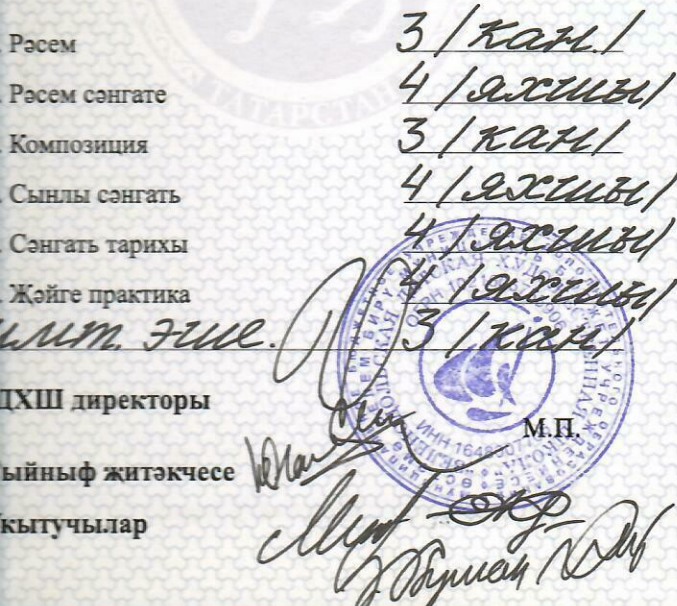 ТАТАРСТАН
. Рәсем 3 /кан./
. Рәсем сәнгате 4 /яхшы/
. Композиция 3 /кан/
. Сынлы сәнгать 4 /яхшы/
. Сәнгать тарихы 4 /яхшы/
. Җәйге практика 4 /яхшы/
имт. эше. 3 /кан/
ДХШ директоры
М.П.
ыйныф җитәкчесе
кытучылар